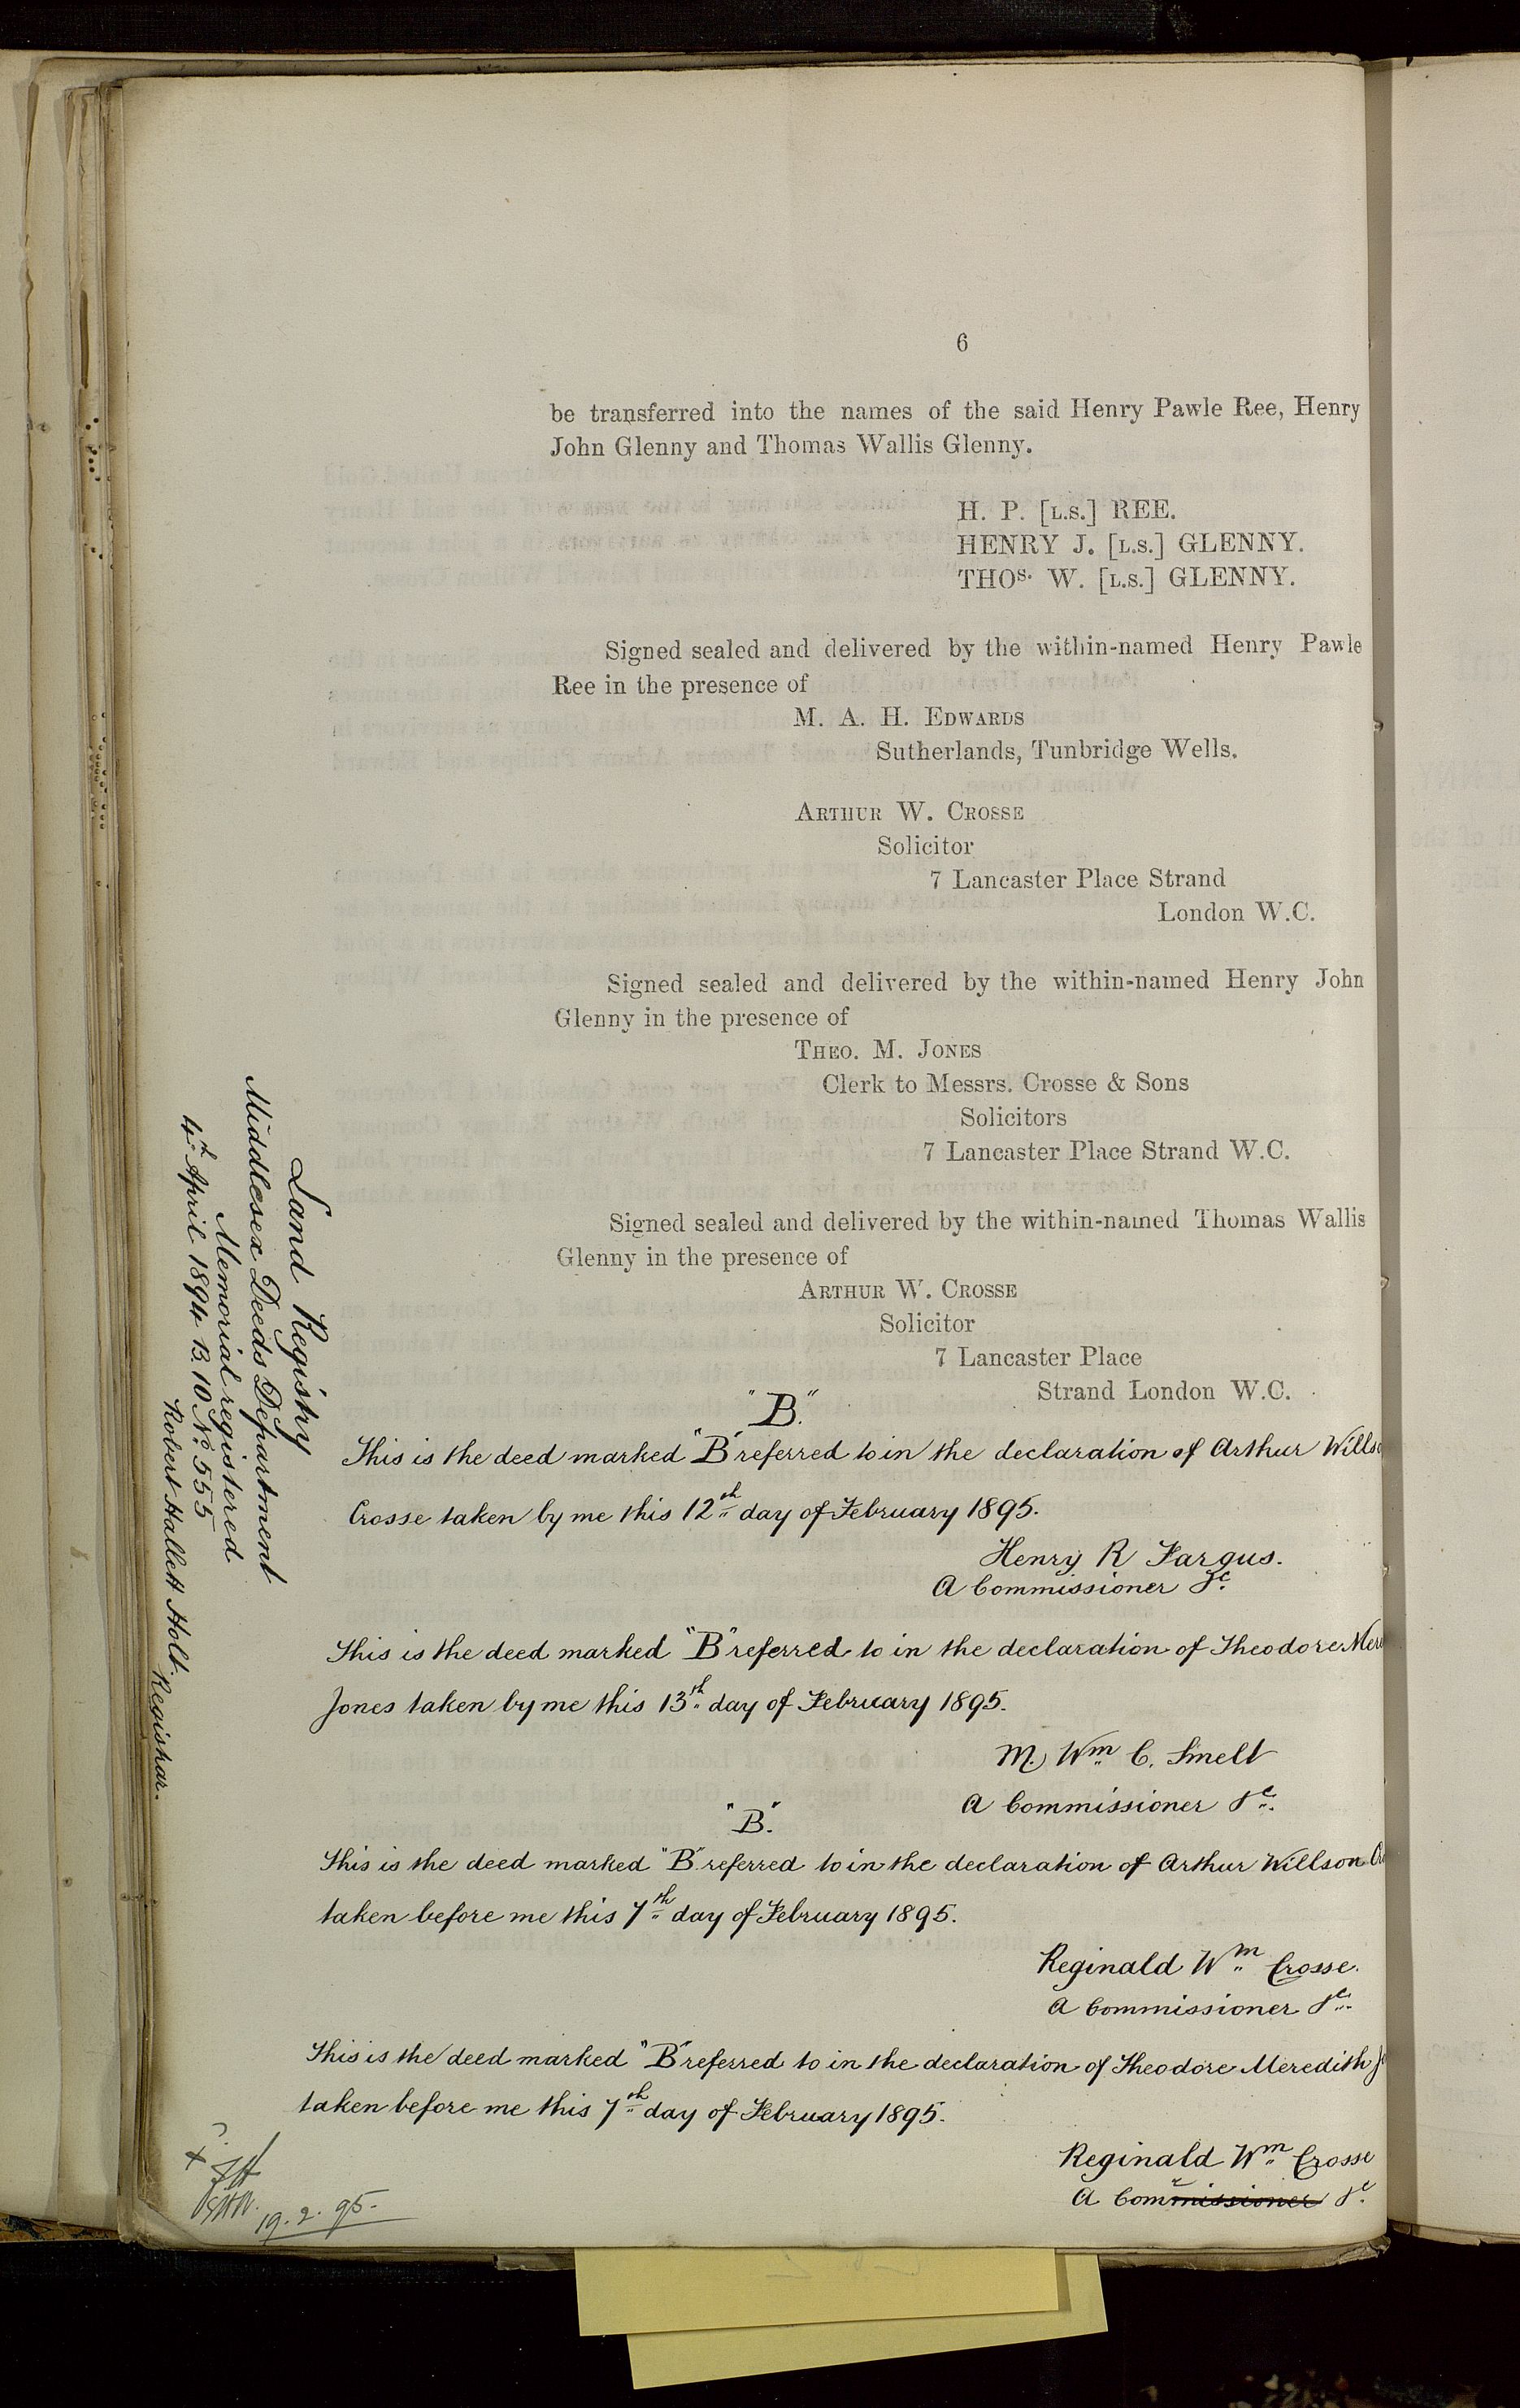 6
be transferred into the names of the said Henry Pawle Ree, Henry
John Glenny and Thomas Wallis Glenny.
H. P. [L.S.] REE.
HENRY J. [L.S.] GLENNY.
THOS. W. [L.S.] GLENNY.
Signed sealed and delivered by the within-named Henry Pawle
Ree in the presence of
M. A. H. EDWARDS
Sutherlands, Tunbridge Wells.
ARTHUR W. CROSSE
Solicitor
7 Lancaster Place Strand
London W.C.
Signed sealed and delivered by the within-named Henry John
Glenny in the presence of
THEO. M. JONES
Clerk to Messrs. Crosse & Sons
Solicitors
7 Lancaster Place Strand W.C.
Signed sealed and delivered by the within-named Thomas Wallis
Glenny in the presence of
ARTHUR W. CROSSE
Solicitor
7 Lancaster Place
Strand London W.C.
"B."
This is the deed marked "B" referred to in the declaration of Arthur Wills
Crosse taken by me this 12th day of February 1895.
Henry R Fargus.
A Commissioner &c.
This is the deed marked "B" referred to in the declaration of Theodore Mere
Jones taken by me this 13th day of February 1895.
M. Wm C. Smelt
A Commissioner &c.
"B."
This is the deed marked "B" referred to in the declaration of Arthur Willson Cr
taken before me this 7th day of February 1895.
Reginald Wm Crosse.
A Commissioner &c.
This is the deed marked "B" referred to in the declaration of Theodore Meredith J
taken before me this 7th day of February 1895.
Reginald Wm Crosse
A Commissioner &c.
Land Registry
Middlesex Deeds Department
Memorial registered
4th April 1894 B. 10 No. 555
Robert Hallett Holt. Registrar.
19.2.95.